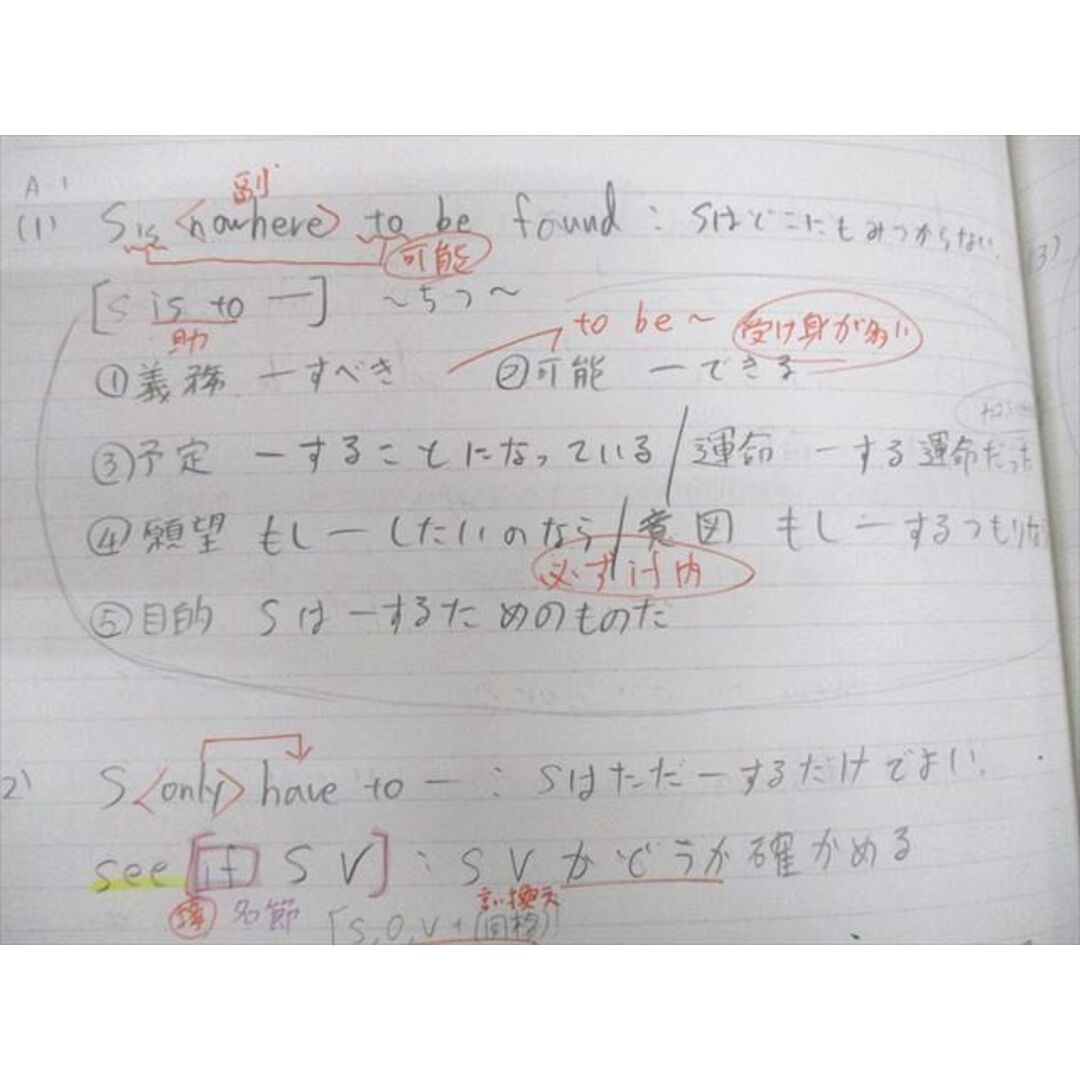 A-1
副
(1) S is <nowhere> to be found : Sはどこにもみつからない。
可能
[S is to ー] ~ちつ~
助
to be ~ 受け身が多い
①義務 ーすべき ②可能 ーできる
③予定 ーすることになっている/運命 ーする運命だった
④願望 もしーしたいのなら/意図 もしーするつもりな
必ずif内
⑤目的 Sはーするためのものだ
2) S <only> have to ー : Sはただーするだけでよい.
see [if S V] : S V かどうか確かめる
名節 言い換え
[S,O,V+(同格)]
3)